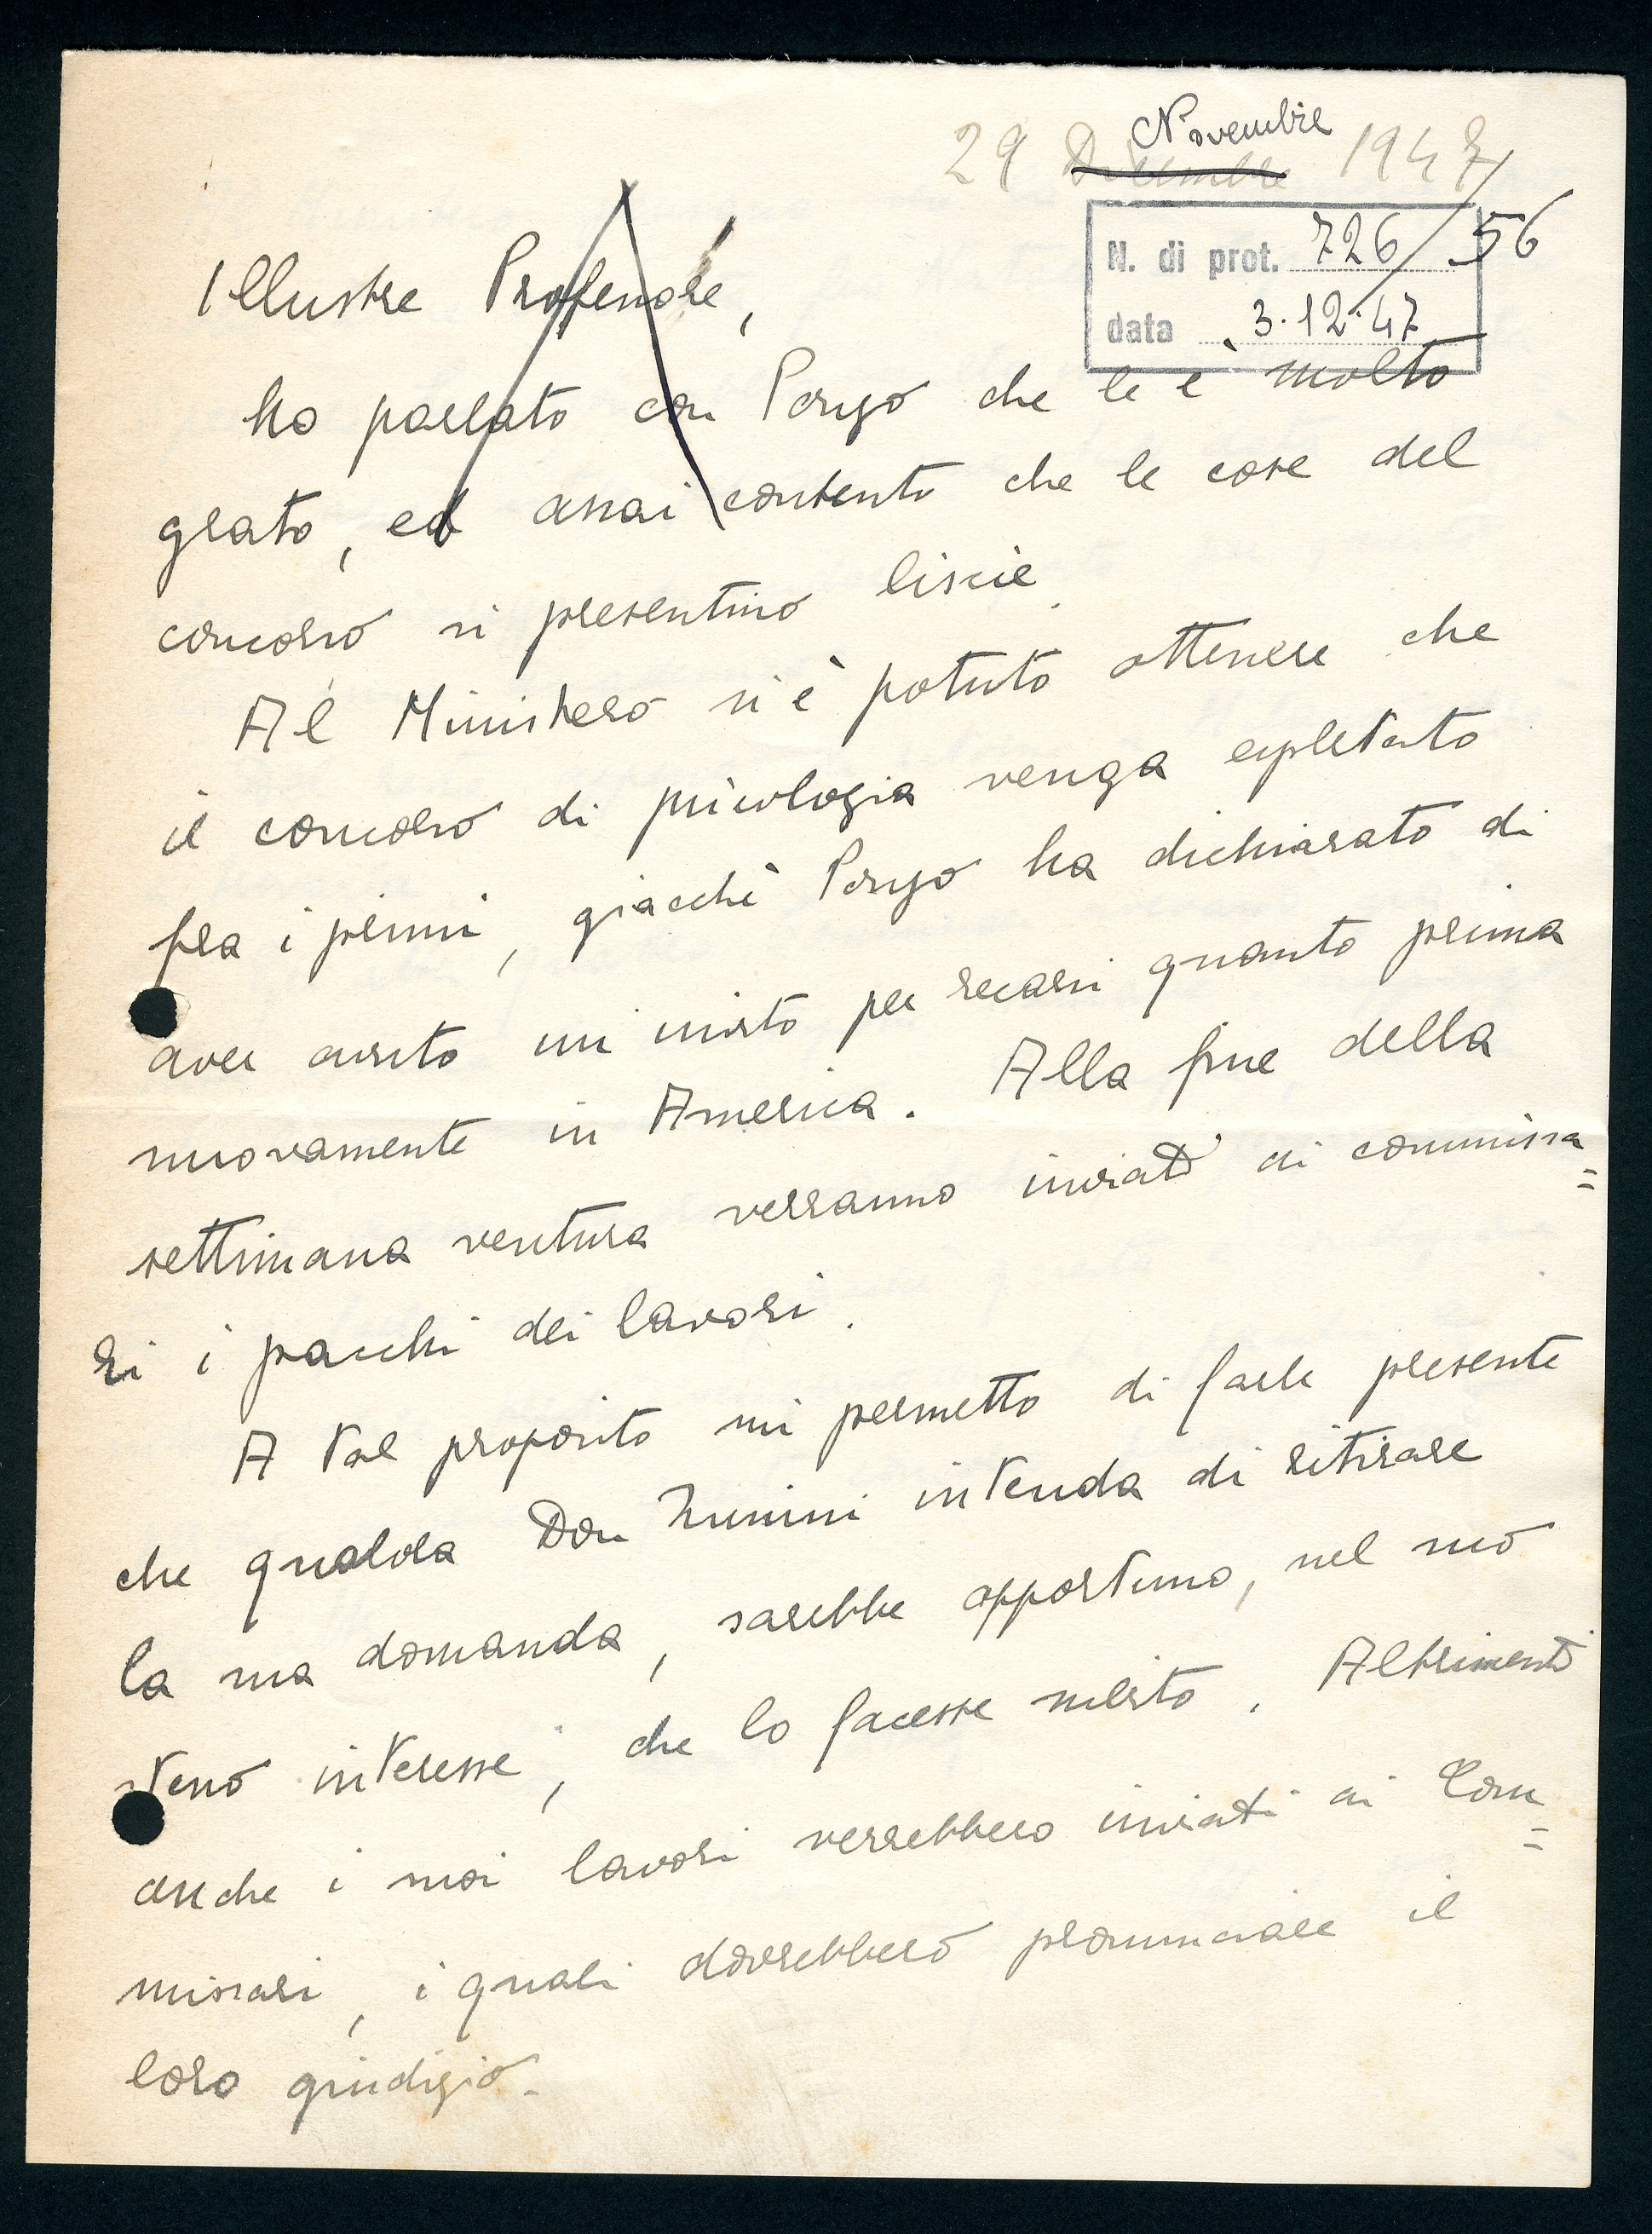 Novembre
29 Dicembre 1947
N. di prot. 726/56
data 3.12.47
Illustre Professore,
ho parlato con Ponzo che le è molto
grato, ed assai contento che le cose del
concorso si presentino liscie.
Al Ministero si è potuto ottenere che
il concorso di psicologia venga espletato
fra i primi, giacchè Ponzo ha dichiarato di
aver avuto un invito per recarsi quanto prima
nuovamente in America. Alla fine della
settimana ventura verranno inviati ai commissa=
ri i pacchi dei lavori.
A tal proposito mi permetto di farle presente
che qualora Don Zunini intenda di ritirare
la sua domanda, sarebbe opportuno, nel suo
stesso interesse, che lo facesse subito. Altrimenti
anche i suoi lavori verrebbero inviati ai Com=
missari, i quali dovrebbero pronunciare il
loro giudizio.